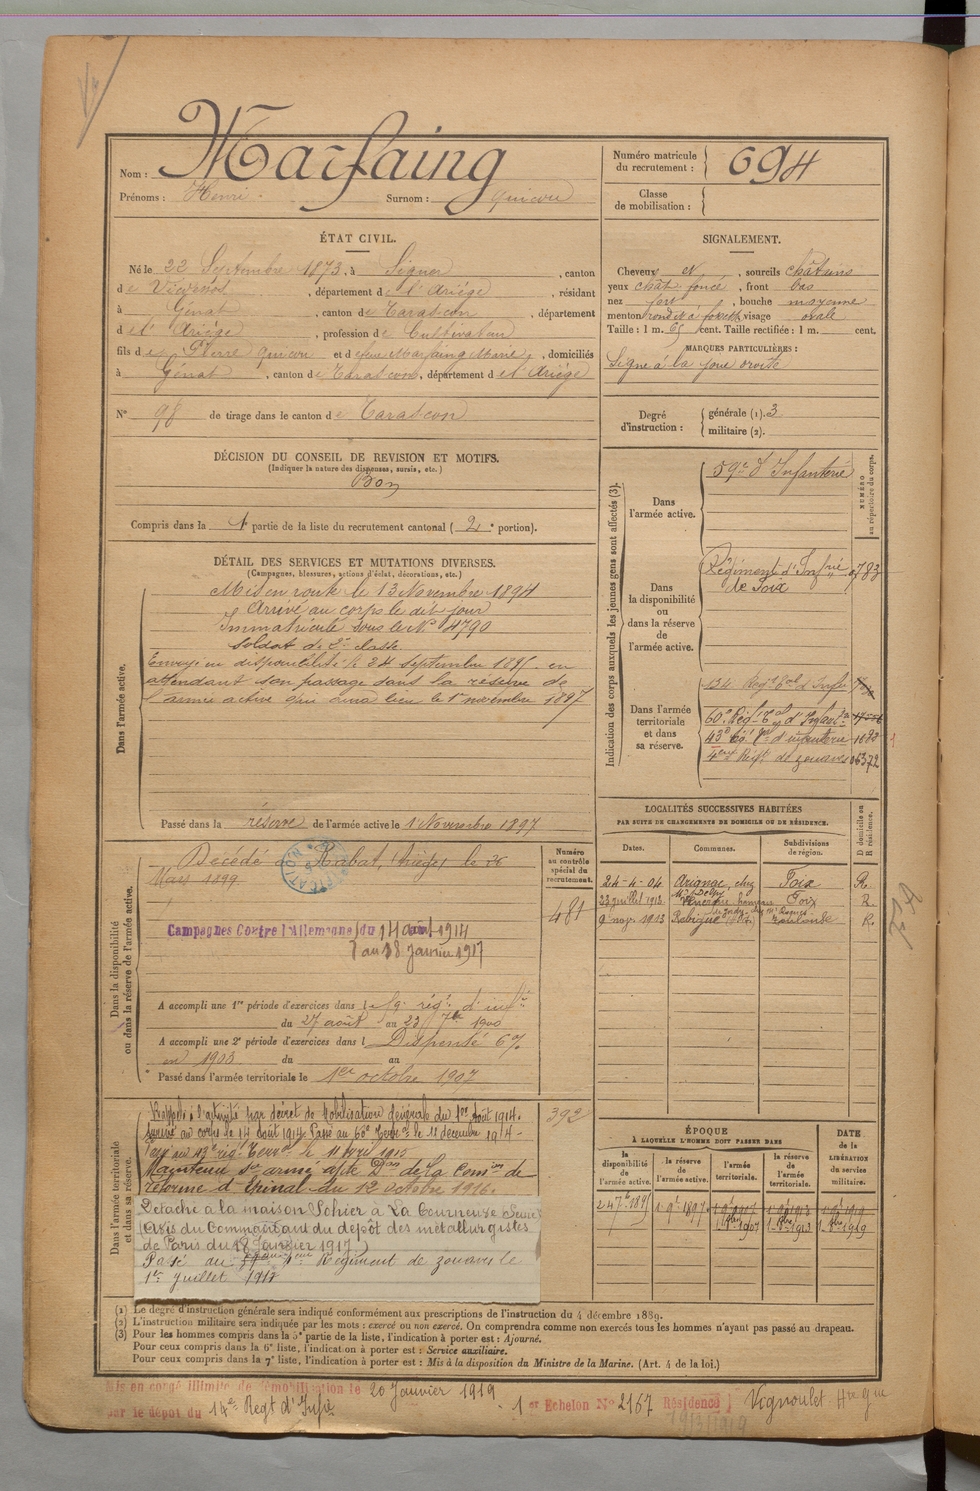 Nom : Marfaing
Prénoms : Henri Surnom : Quicou
Numéro matricule du recrutement : 694
Classe de mobilisation :
ÉTAT CIVIL.
Né le 22 Septembre 1873, à Signer, canton
de Vicdessos, département de l'Ariège, résidant
à Génat, canton de Tarascon, département
de l'Ariège, profession de Cultivateur
fils de Pierre Quicou et de feue Marfaing Marie, domiciliés
à Génat, canton de Tarascon, département de l'Ariège
N° 98 de tirage dans le canton de Tarascon
SIGNALEMENT.
Cheveux et, sourcils châtains
yeux chât. foncé, front bas
nez fort, bouche moyenne
menton rond à fossette, visage ovale
Taille : 1 m. 65 cent. Taille rectifiée : 1 m. cent.
MARQUES PARTICULIÈRES :
Signe à la joue droite
Degré d'instruction : générale (1). 3
militaire (2).
DÉCISION DU CONSEIL DE REVISION ET MOTIFS.
(Indiquer la nature des dispenses, sursis, etc.)
Bon
Compris dans la 1 partie de la liste du recrutement cantonal ( 2e portion).
DÉTAIL DES SERVICES ET MUTATIONS DIVERSES.
(Campagnes, blessures, actions d'éclat, décorations, etc.)
Dans l'armée active.
Mis en route le 13 Novembre 1894
Arrivé au corps le dit jour
Immatriculé sous le N° 4790
Soldat de 2e classe
Envoyé en disponibilité le 24 septembre 1895 en
attendant son passage dans la réserve de
l'armée active qui aura lieu le 1er novembre 1897
Passé dans la réserve de l'armée active le 1 Novembre 1897
Indication des corps auxquels les jeunes gens sont affectés (3).
NUMÉRO au répertoire du corps.
Dans l'armée active.
59e d'Infanterie
Dans la disponibilité ou dans la réserve de l'armée active.
Régiment d'Infrie de Foix 0783
Dans l'armée territoriale et dans sa réserve.
134 Regt tal d'Infie
60e Rég. tal d'Infant.
43e tal d'infanterie 1682
4eme Regt de zouaves 06372
Dans la disponibilité ou dans la réserve de l'armée active.
Décédé à Rabat, (Ariège) le 26
Mars 1899
Campagnes Contre l'Allemagne du 14 août 1914
au 18 janvier 1917
A accompli une 1re période d'exercices dans le 59e rég. d'infie
du 27 août au 23 7bre 1900
A accompli une 2e période d'exercices dans l Dispensé
en 1903 du au
Passé dans l'armée territoriale le 1er octobre 1907
Numéro au contrôle spécial du recrutement.
481
392
LOCALITÉS SUCCESSIVES HABITÉES
PAR SUITE DE CHANGEMENTS DE DOMICILE OU DE RÉSIDENCE.
Dates. Communes. Subdivisions de région. D domicile ou R résidence.
24-4-04 Arignac, chez Foix R.
23 juillet 1912 Foix R.
9 nov. 1913 Toulouse R.
Dans l'armée territoriale et dans sa réserve.
Rappelé à l'activité par décret de Mobilisation Générale du 1er Août 1914.
Arrivé au corps le 14 août 1914. Passé au 60e Terral le 11 décembre 1914.
Passé au 43e régt Terral le 11 Avril 1915
Maintenu sce armé apte Don de la Comon de
réforme d'Epinal du 12 octobre 1916.
Détaché à la maison Sohier à La Courneuve (Seine)
(Avis du Commandant du dépôt des métallurgistes
de Paris du 18 Janvier 1917)
Passé au 4eme Régiment de zouaves le
1er juillet 1917
ÉPOQUE
À LAQUELLE L'HOMME DOIT PASSER DANS
la disponibilité de l'armée active. la réserve de l'armée active. l'armée territoriale. la réserve de l'armée territoriale.
DATE de la LIBÉRATION du service militaire.
24 7bre 1895 1 9bre 1897 1 8bre 1907 1 8bre 1913 1 8bre 1919
(1) Le degré d'instruction générale sera indiqué conformément aux prescriptions de l'instruction du 4 décembre 1889.
(2) L'instruction militaire sera indiquée par les mots : exercé ou non exercé. On comprendra comme non exercés tous les hommes n'ayant pas passé au drapeau.
(3) Pour les hommes compris dans la 5e partie de la liste, l'indication à porter est : Ajourné.
Pour ceux compris dans la 6e liste, l'indication à porter est : Service auxiliaire.
Pour ceux compris dans la 7e liste, l'indication à porter est : Mis à la disposition du Ministre de la Marine. (Art. 4 de la loi.)
Mis en congé illimité de démobilisation le 20 Janvier 1919
par le dépôt du 14e Regt d'Infie 1er Echelon N° 2167 Résidence Vignoulet Hte Gne
19/3/1919